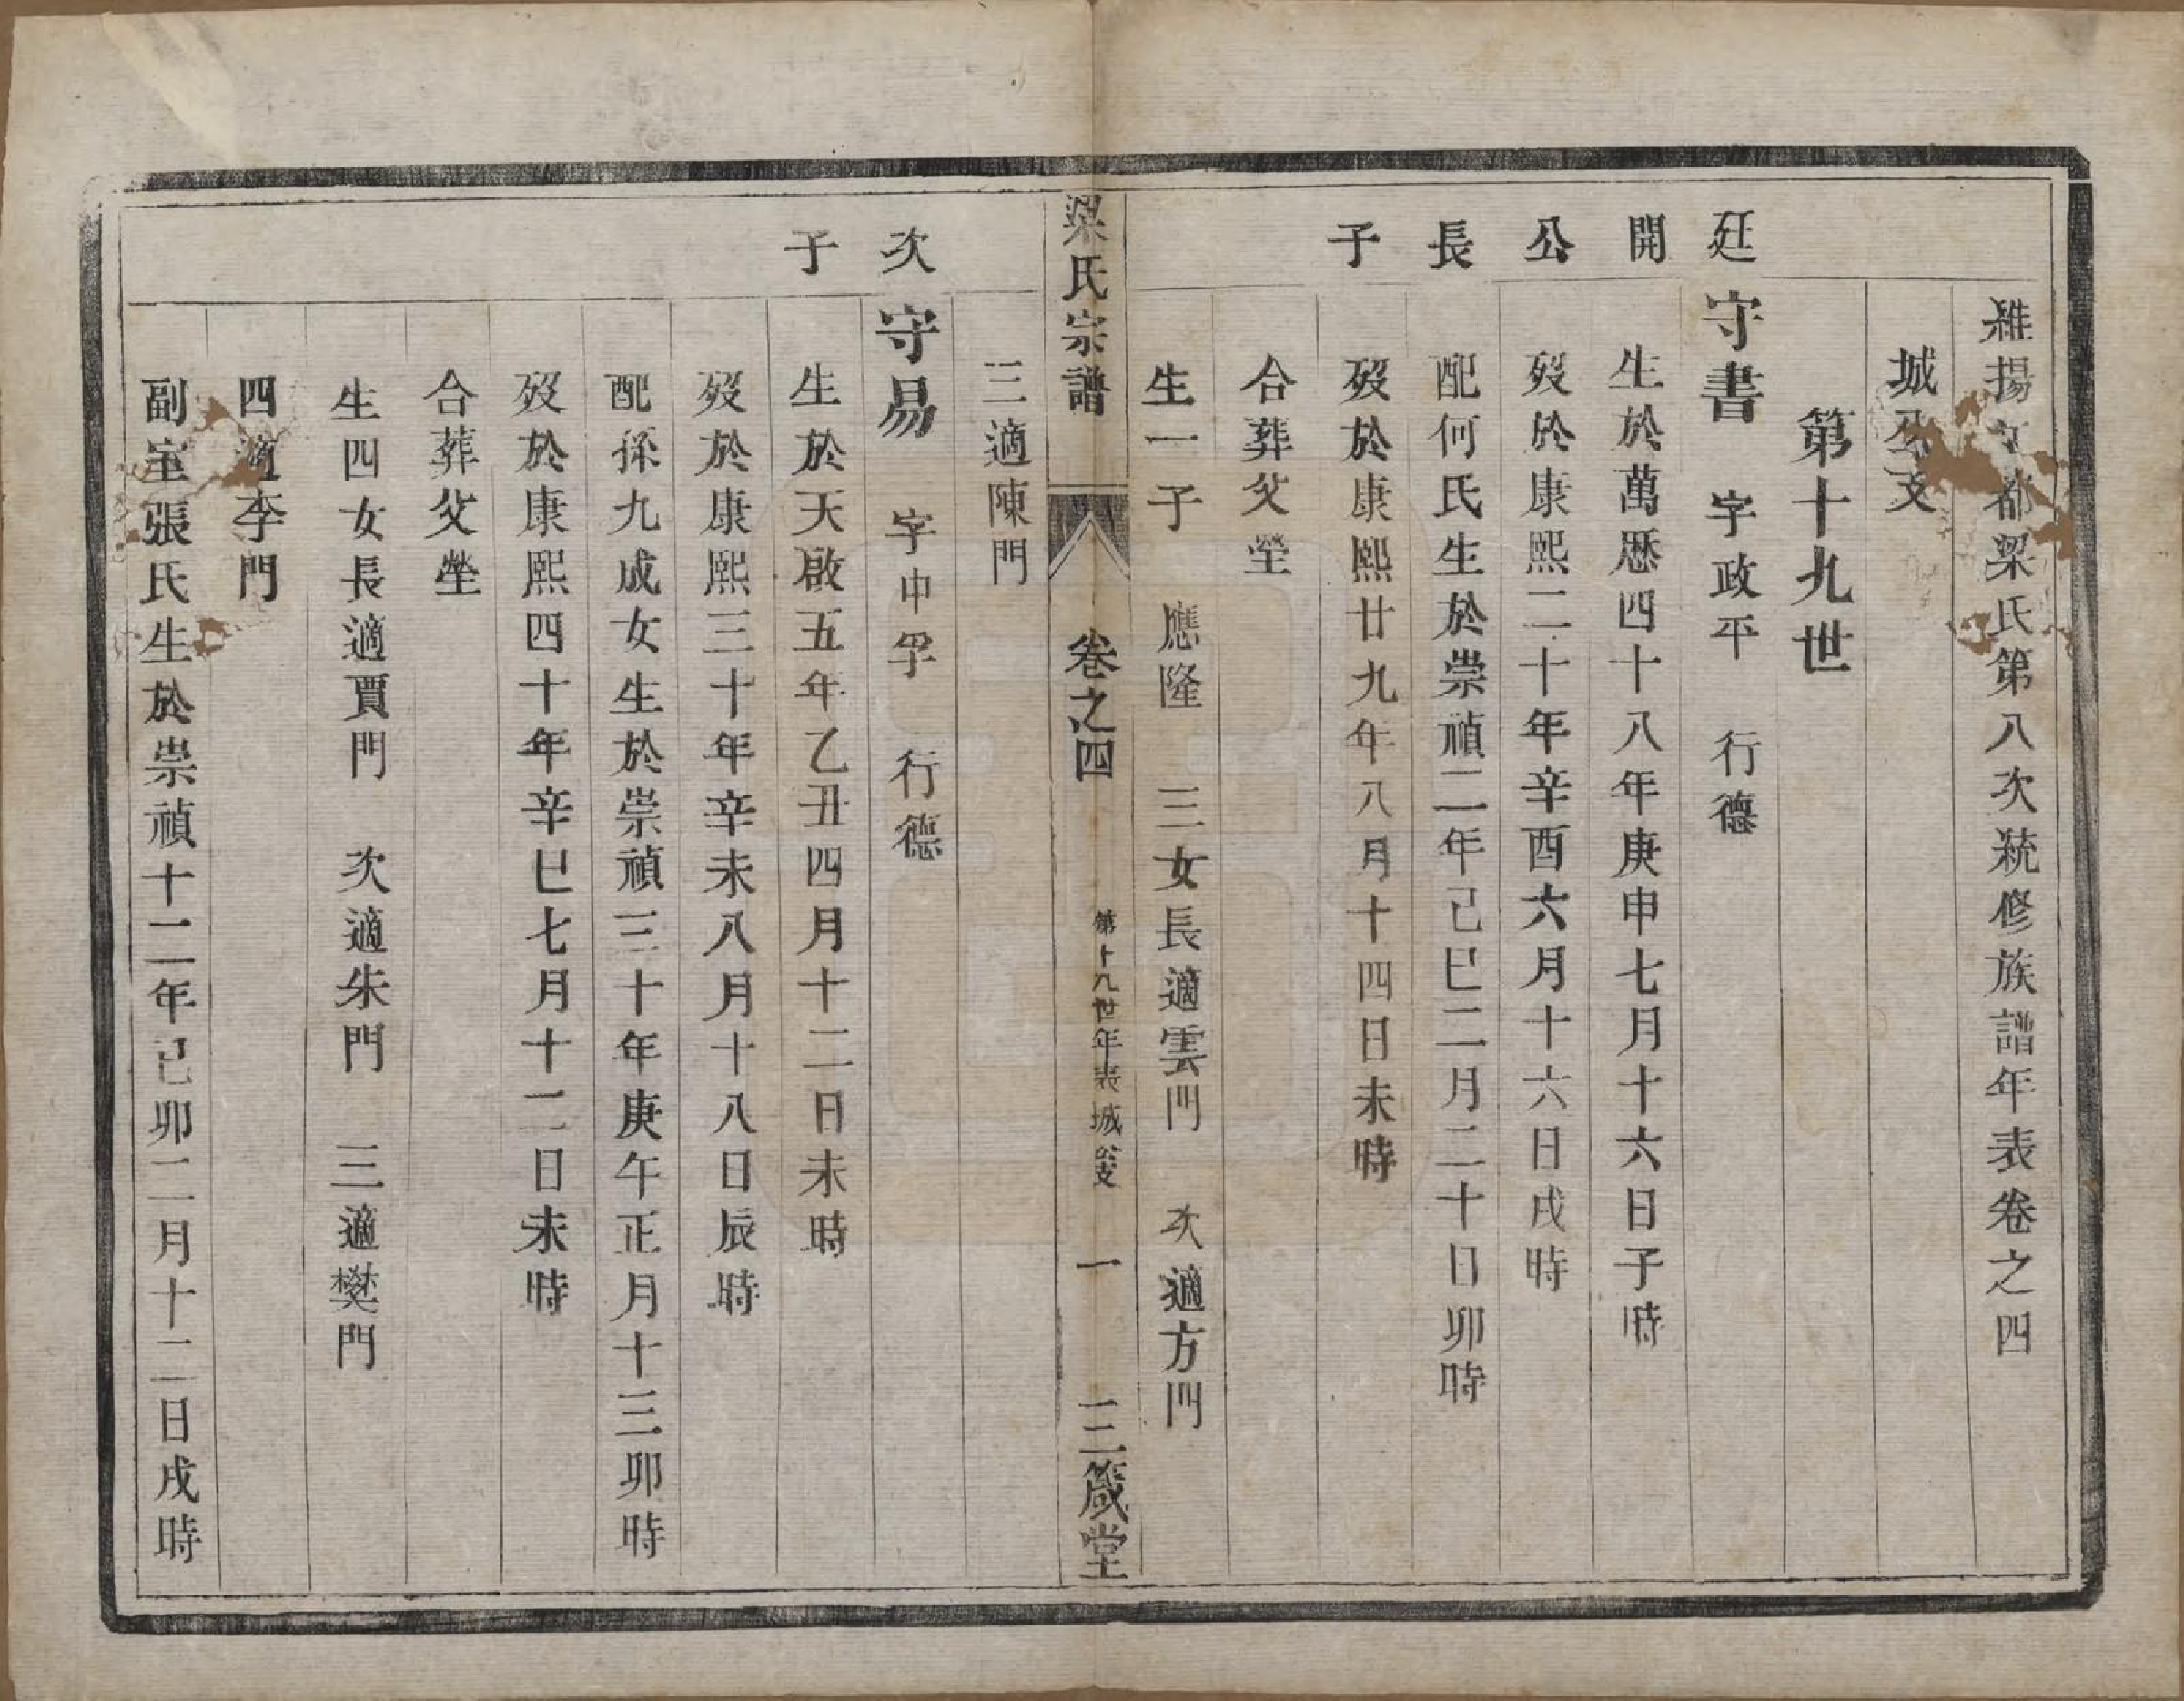 維揚江都梁氏第八次統修族譜年表卷之四
城公支
第十九世
廷開公長子
守書 字政平 行德
生於萬厯四十八年庚申七月十六日子時
歿於康熙二十年辛酉六月十六日戌時
配何氏生於崇禎二年己巳二月二十日卯時
歿於康熙廿九年八月十四日未時
合葬父塋
生一子 應隆 三女長適雲門 次適方門
梁氏宗譜 卷之四 第十九世年表城公支 一 三箴堂
三適陳門
次子
守易 字中孚 行德
生於天啟五年乙丑四月十二日未時
歿於康熙三十年辛未八月十八日辰時
配孫九成女生於崇禎三十年庚午正月十三卯時
歿於康熙四十年辛巳七月十二日未時
合葬父塋
生四女長適賈門 次適朱門 三適樊門
四適李門
副室張氏生於崇禎十二年己卯二月十二日戌時